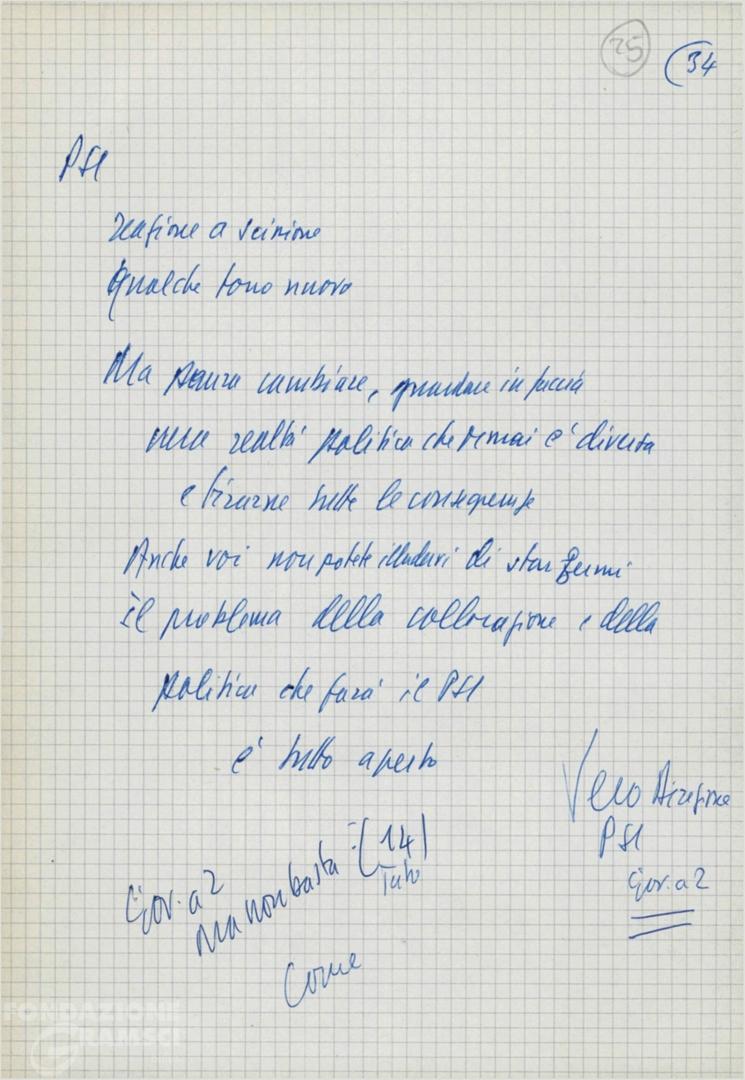 25
34
PSI
reazione a scissione
Qualche tono nuovo
Ma senza cambiare, guardare in faccia
una realtà politica che ormai è diversa
e tirarne tutte le conseguenze
Anche voi non potete illudervi di star fermi
il problema della collocazione e della
politica che farà il PSI
è tutto aperto
Gov. a 2
ma non basta - (14)
Come
Direzione
PSI
Gov. a 2
FONDAZIONE
GRAMSCI